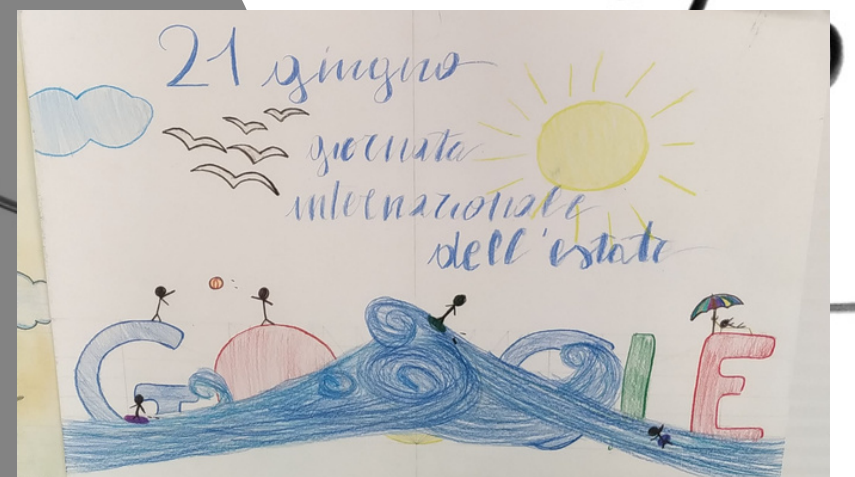 21 giugno
giornata
internazionale
dell'estate
GOOGlE